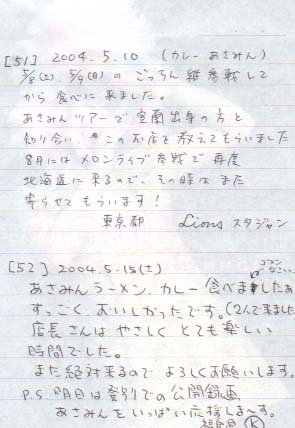 [51] 2004.5.10 (カレー あさみん)
5/8(土)、5/9(日)の ごっちん 組参戦して
から 食べに 来ました。
あさみんツアーで 室蘭出身の 方と
知り合い、 このお店を教えてもらいました
8月には メロンライブ参戦で 再度
北海道に 来るので、その時は また
寄らせて もらいます!
東京都 Lions スタジャン
[52] 2004.5.15(土) ゴメンなさい。
あさみんラーメン、カレー 食べましたぁ
すっごく、おいしかったです。(2人で来ました
店長さんは やさしく とても楽しい
時間でした。
また絶対来るので よろしくお願いします。
P.S. 明日は 登別での 公開録画
あさみんをいっぱい応援しまーす。
K